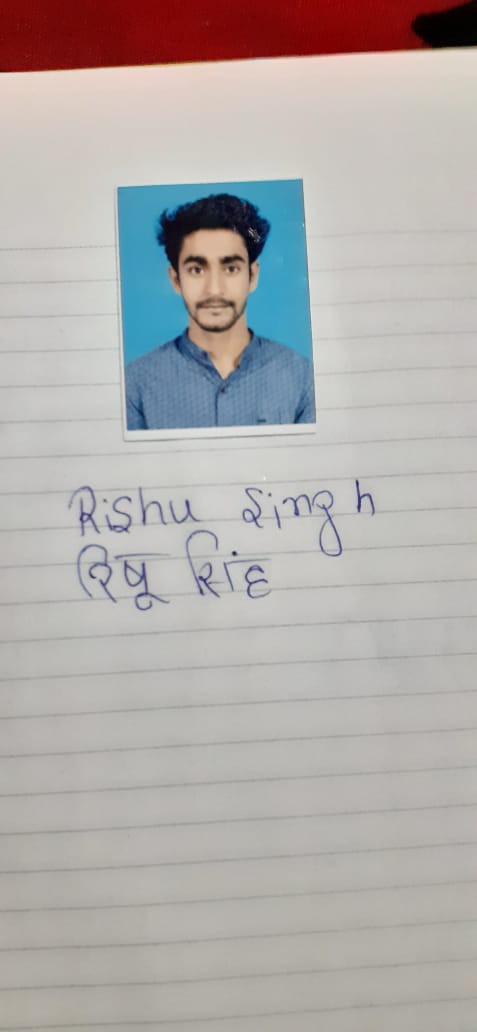 Rishu Singh
रिषू सिंह